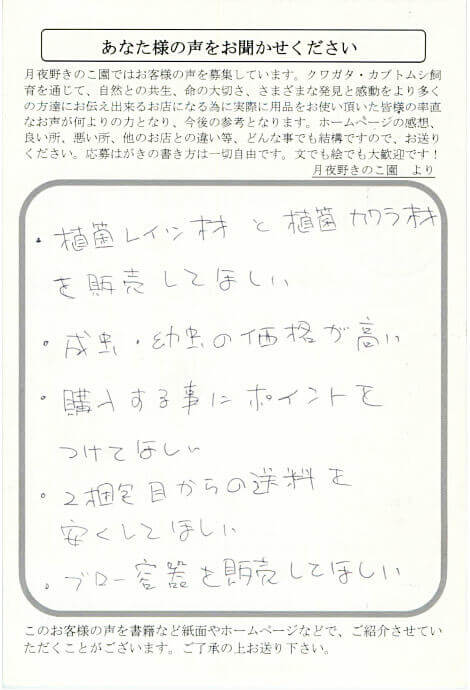 あなた様の声をお聞かせください
月夜野きのこ園ではお客様の声を募集しています。クワガタ・カブトムシ飼
育を通じて、自然との共生、命の大切さ、さまざまな発見と感動をより多く
の方達にお伝え出来るお店になる為に実際に用品をお使い頂いた皆様の率直
なお声が何よりの力となり、今後の参考となります。ホームページの感想、
良い所、悪い所、他のお店との違い等、どんな事でも結構ですので、お送り
ください。応募はがきの書き方は一切自由です。文でも絵でも大歓迎です！
月夜野きのこ園　より
・植菌レイシ材と植菌カワラ材
を販売してほしい
・成虫・幼虫の価格が高い
・購入する事にポイントを
つけてほしい
・2梱包目からの送料を
安くしてほしい
・ブロー容器を販売してほしい
このお客様の声を書籍など紙面やホームページなどで、ご紹介させてい
ただくことがございます。ご了承の上お送り下さい。